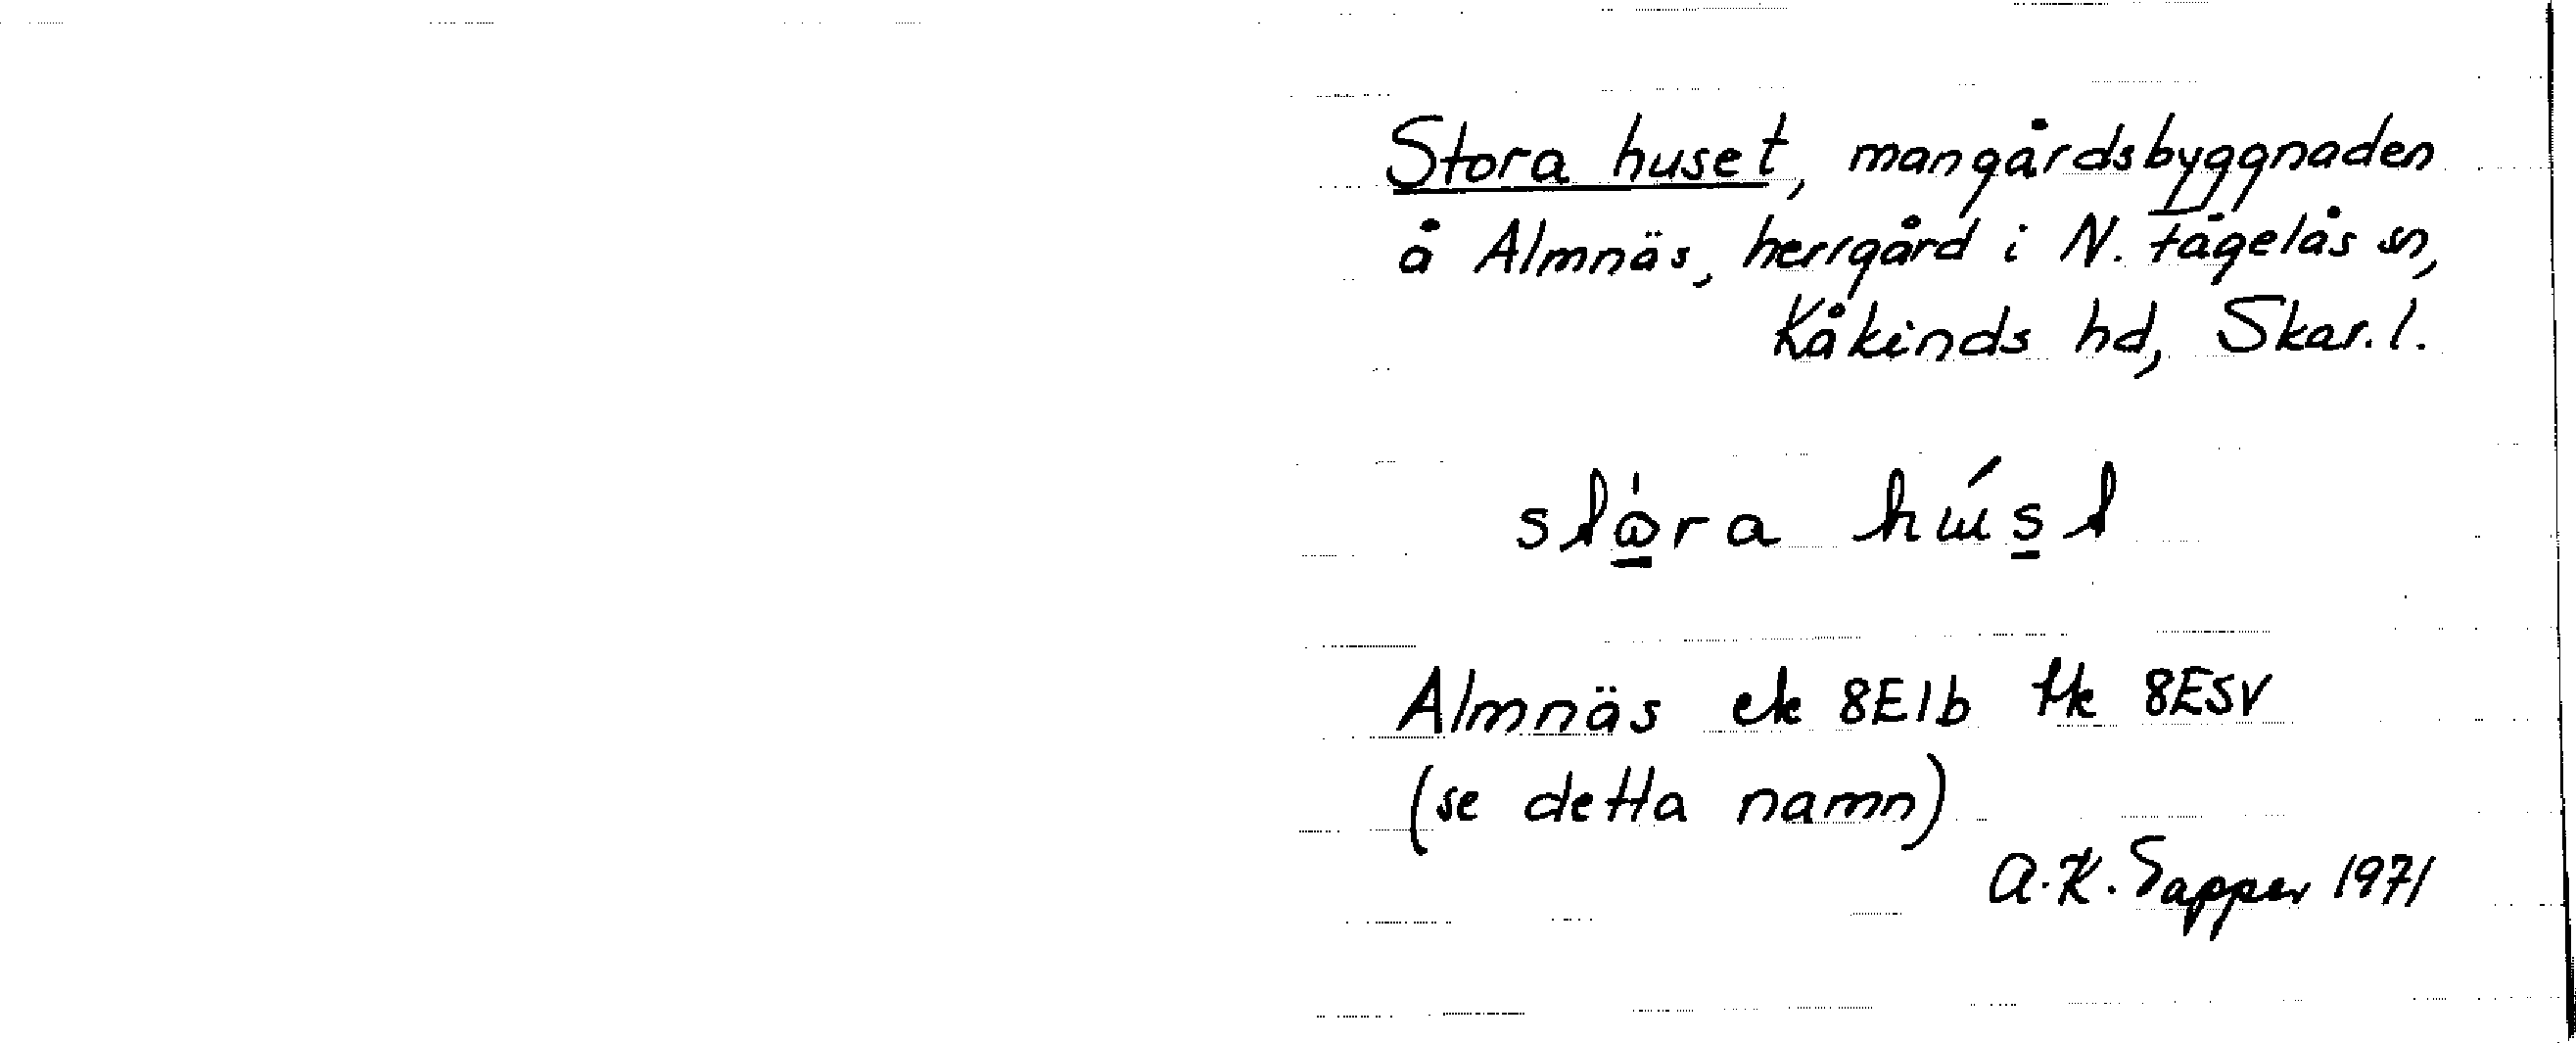 Stora huset, mangårdsbyggnaden
å Almnäs, herrgård i N. Fågelås sn,
Kåkinds hd, Skar.l.
Almnäs ek 8E1b tk 8ESV
(se detta namn)
A.K. Sapper 1971